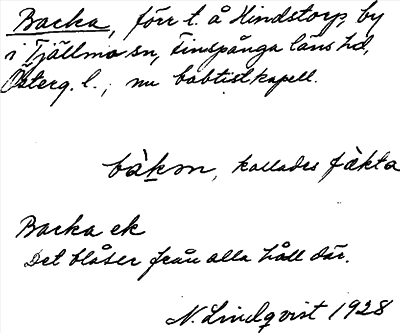 Backa, förr t. å Hindstorp, by
i Tjällmo sn, Finspånga läns hd,
Österg. l., nu babtistkapell.
bàkɑn, kallades fàkta
Backa ek
Det blåser från alla håll där.
N. Lindqvist 1928